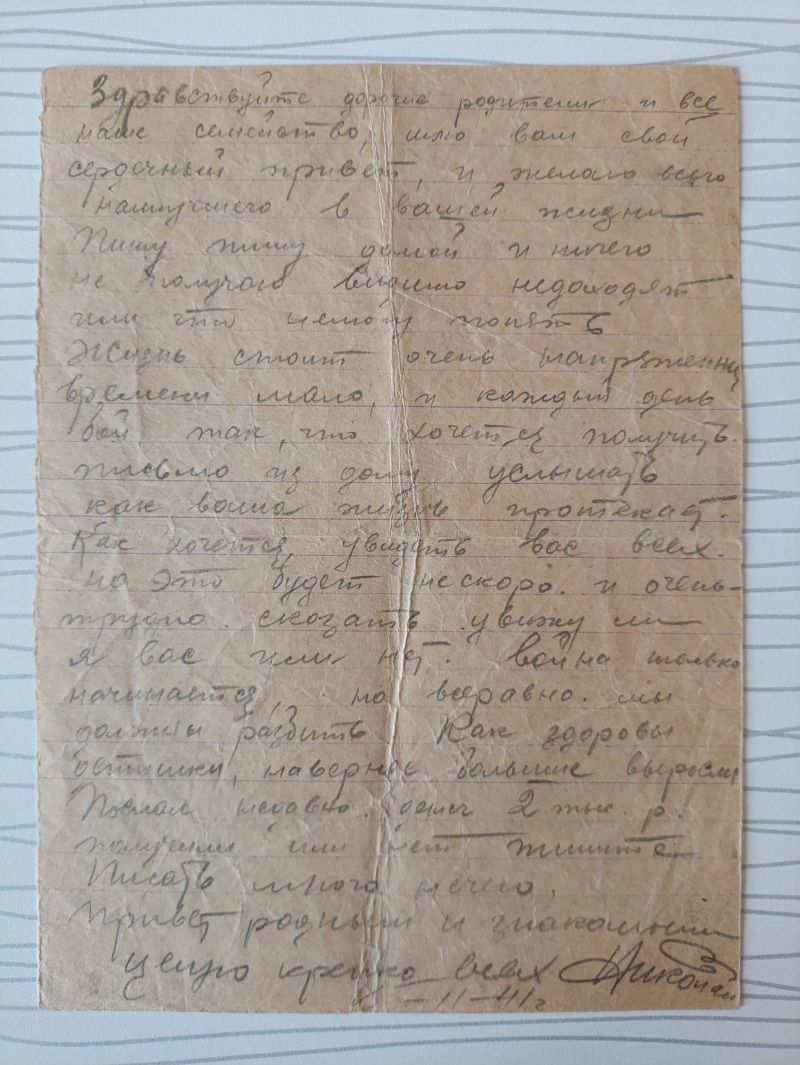 Здравствуйте дорогие родители и все
наше семейство, шлю вам свой
сердечный привет, и желаю всего
наилучшего в вашей жизни
Пишу пишу домой и ничего
не получаю видимо недоходят
или что немогу понять
Жизнь стоит очень напряженна
времени мало, и каждый день
бой. так, что хочется получить.
письмо из дому услышать
как ваша жизнь протекает.
Как хочется, увидеть вас всех.
но это будет нескоро. и очень
трудно. сказать. увижу ли
я вас или нет. Война только
начинается, но всеравно. мы
должны разбить Как здоровы
наверное большие выросли
Послал недавно. денег 2 тыс. р.
получили или нет пишите
Писать много нечего.
Привет родным и знакомым
целую крепко всех Николай
-11-41г